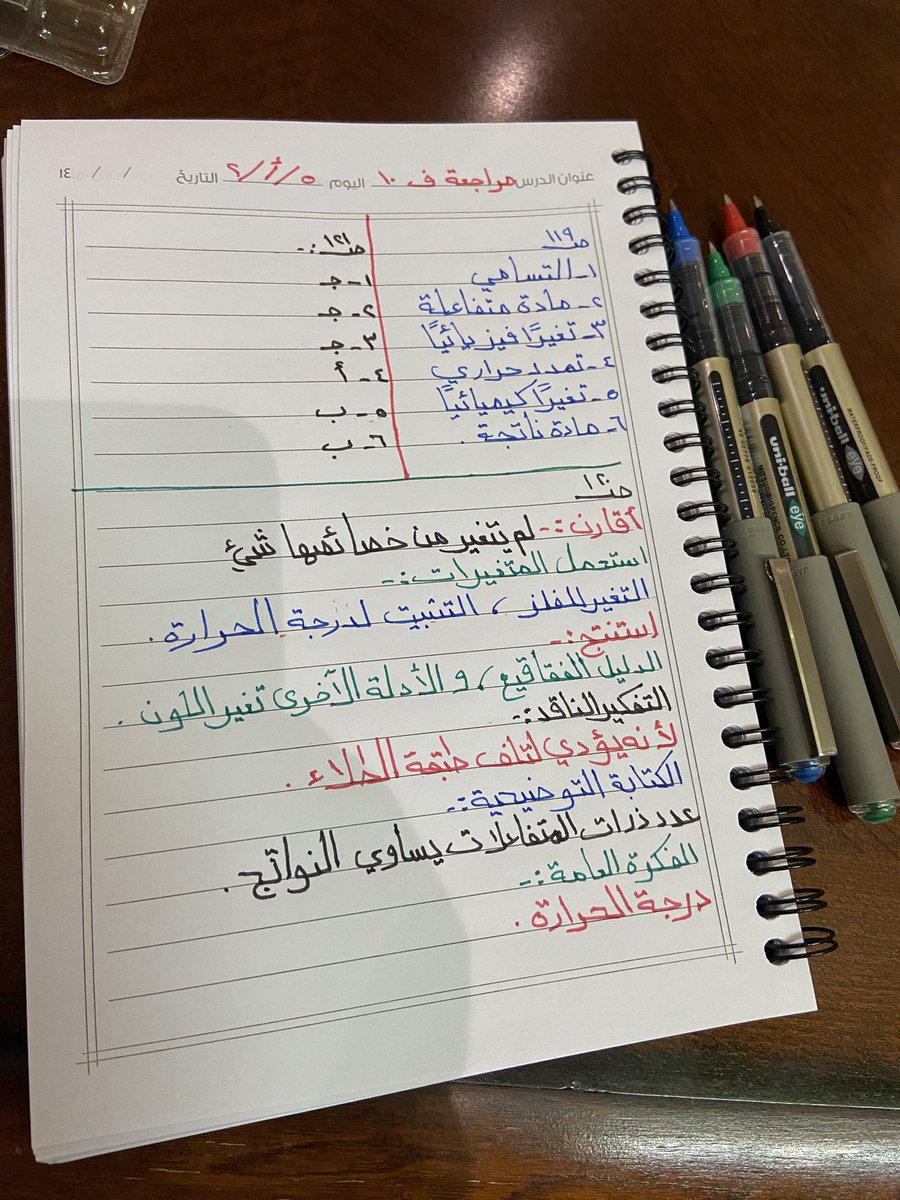 عنوان الدرس مراجعة ف ١٠ اليوم ٥/أ/٢ التاريخ / / ١٤
صـ١١٩
١- التسامي
٢- مادة متفاعلة
٣- تغيرًا فيزيائيًا
٤- تمدد حراري
٥- تغيرًا كيميائيًا
٦- مادة ناتجة .
صـ١٢١ :-
١- جـ
٢- جـ
٣- جـ
٤- أ
٥- ب
٦- ب
صـ١٢٠
أقارن :- لم يتغير من خصائصها شيئ
استعمل المتغيرات :-
التغير للفلز ، التثبيت لدرجة الحرارة .
استنتج :-
الدليل الفقاقيع ، و الأدلة الآخرى تغير اللون .
التفكير الناقد :-
لأنه يؤدي لتلف طبقة الطلاء .
الكتابة التوضيحية :-
عدد ذرات المتفاعلات يساوي النواتج .
الفكرة العامة :-
درجة الحرارة .
uni-ball eye
WATERPROOF/FADE-PROOF
uni-ball eye